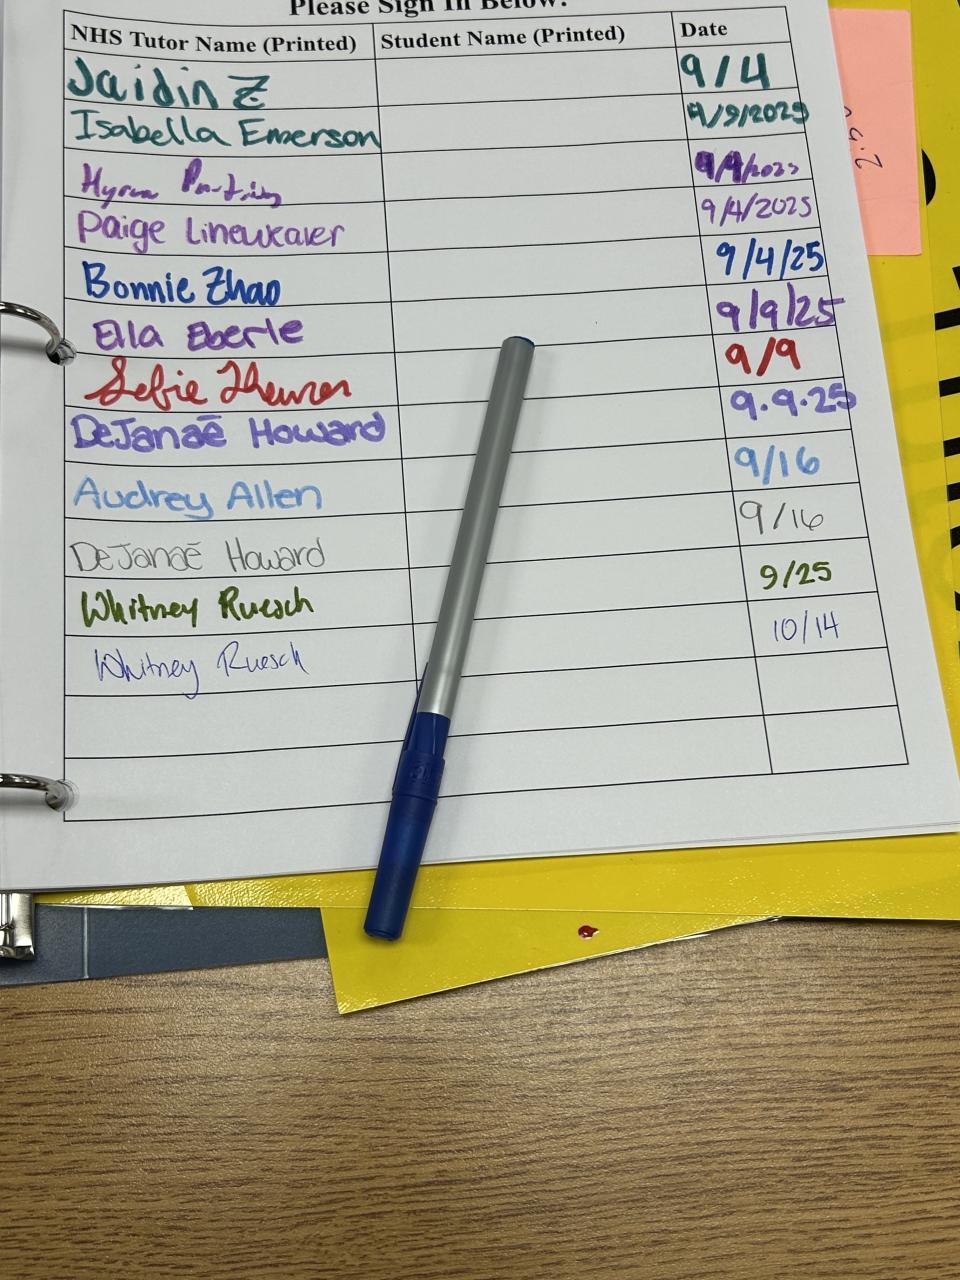 Please Sign In Below:
NHS Tutor Name (Printed) Student Name (Printed) Date
Jaidin Z 9/4
Isabella Emerson 9/9/2025
9/4/2025
Paige Lineweaver 9/4/2025
Bonnie Zhao 9/4/25
Ella Eberle 9/9/25
9/9
DeJanaē Howard 9.9.25
Audrey Allen 9/16
DeJanaē Howard 9/16
Whitney Ruesch 9/25
Whitney Ruesch 10/14